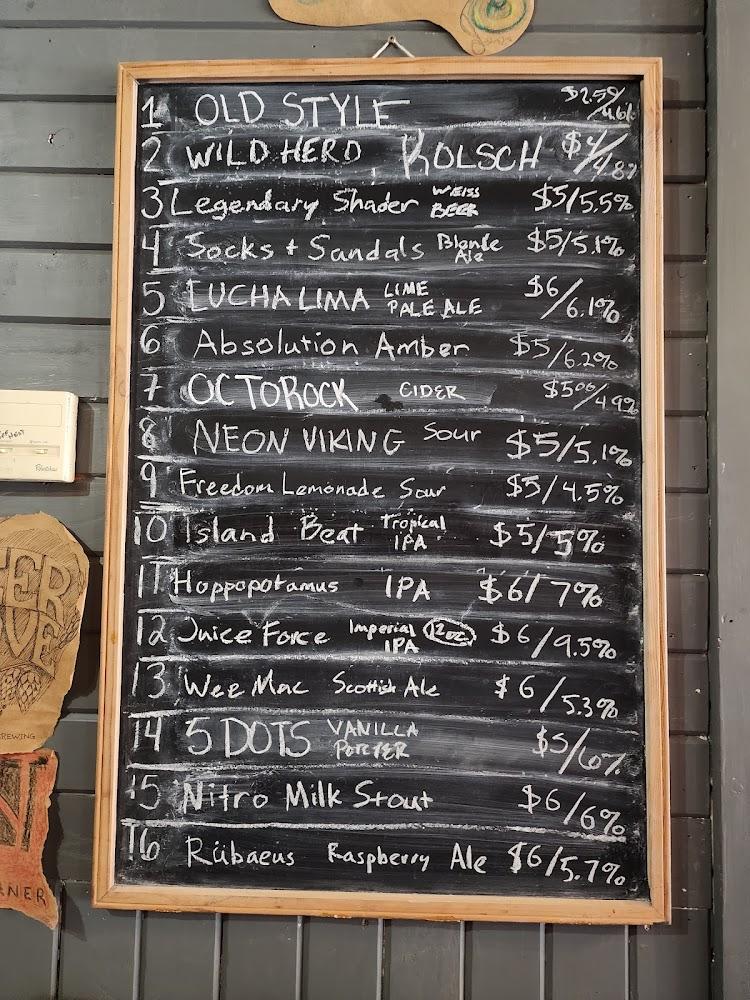 1 OLD STYLE $2.50/4.6%
2 WILD HERD KOLSCH $4/4.8%
3 Legendary Shader WEISS BEER $5/5.5%
4 Socks + Sandals Blonde Ale $5/5.1%
5 LUCHA LIMA LIME PALE ALE $6/6.1%
6 Absolution Amber $5/6.2%
7 OCTOROCK CIDER $500/4.9%
8 NEON VIKING Sour $5/5.1%
9 Freedom Lemonade Sour $5/4.5%
10 Island Beat Tropical IPA $5/5%
11 Hoppopotamus IPA $6/7%
12 Juice Force Imperial IPA 12oz $6/9.5%
13 Wee Mac Scottish Ale $6/5.3%
14 5 DOTS VANILLA PORTER $5/6%
15 Nitro Milk Stout $6/6%
16 Rübaeus Raspberry Ale $6/5.7%